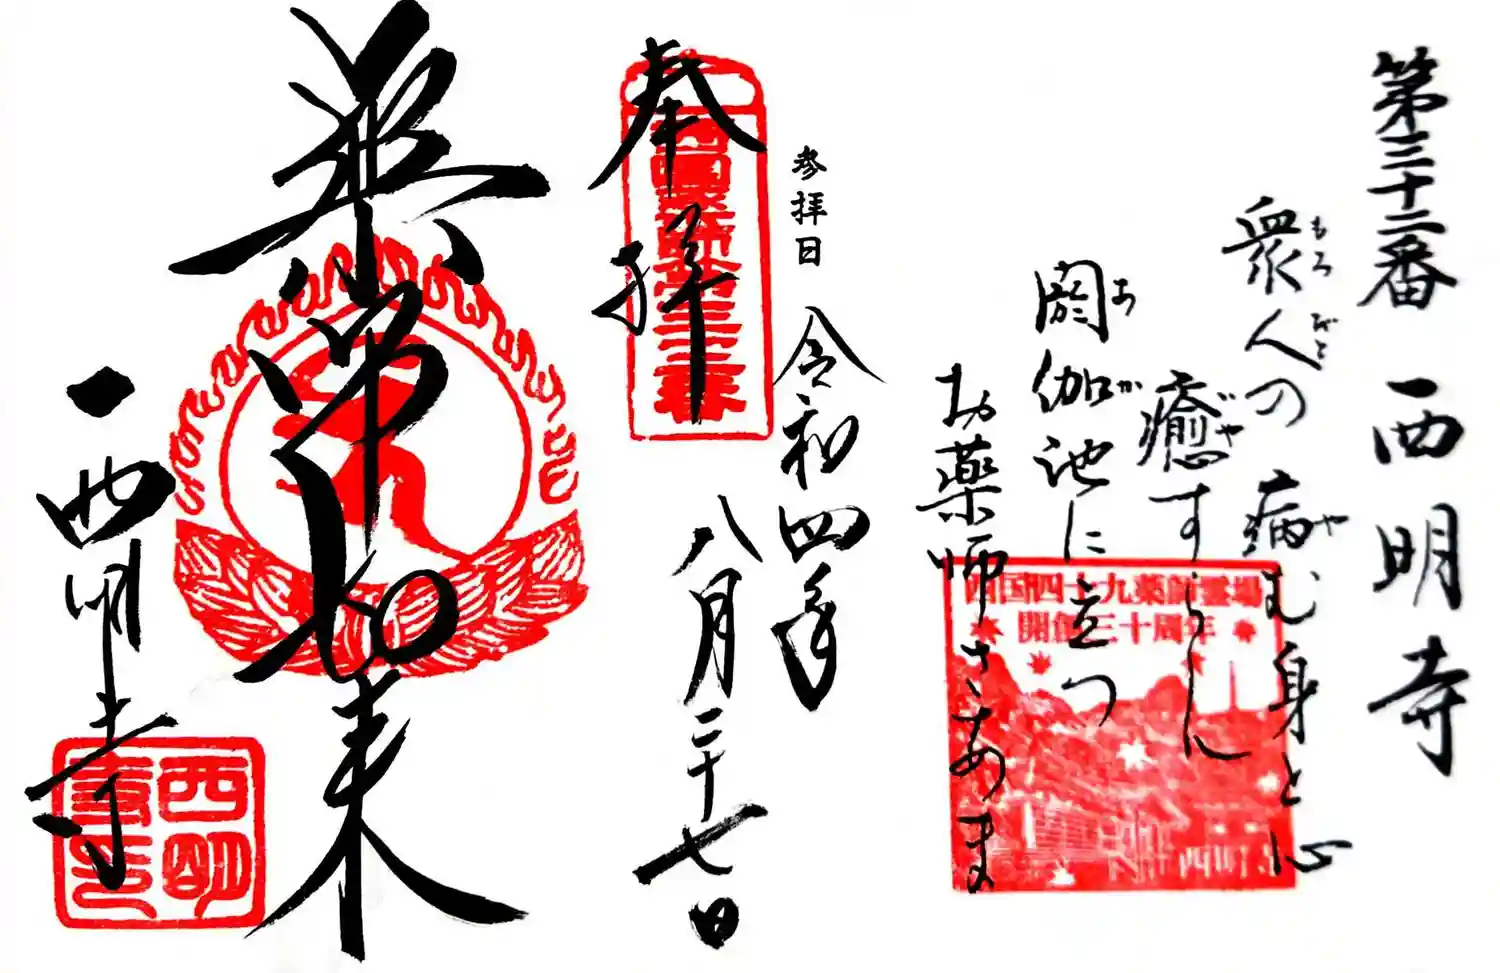 第三十二番 西明寺
衆人の 病む身と心
もろびと や
癒すらん
や
閼伽池に立つ
あか
お薬師さあま
西国四十九薬師霊場
開創三十周年
参拝日 令和四年
八月二十七日
奉拝
薬師如来
西明寺
西明寺印